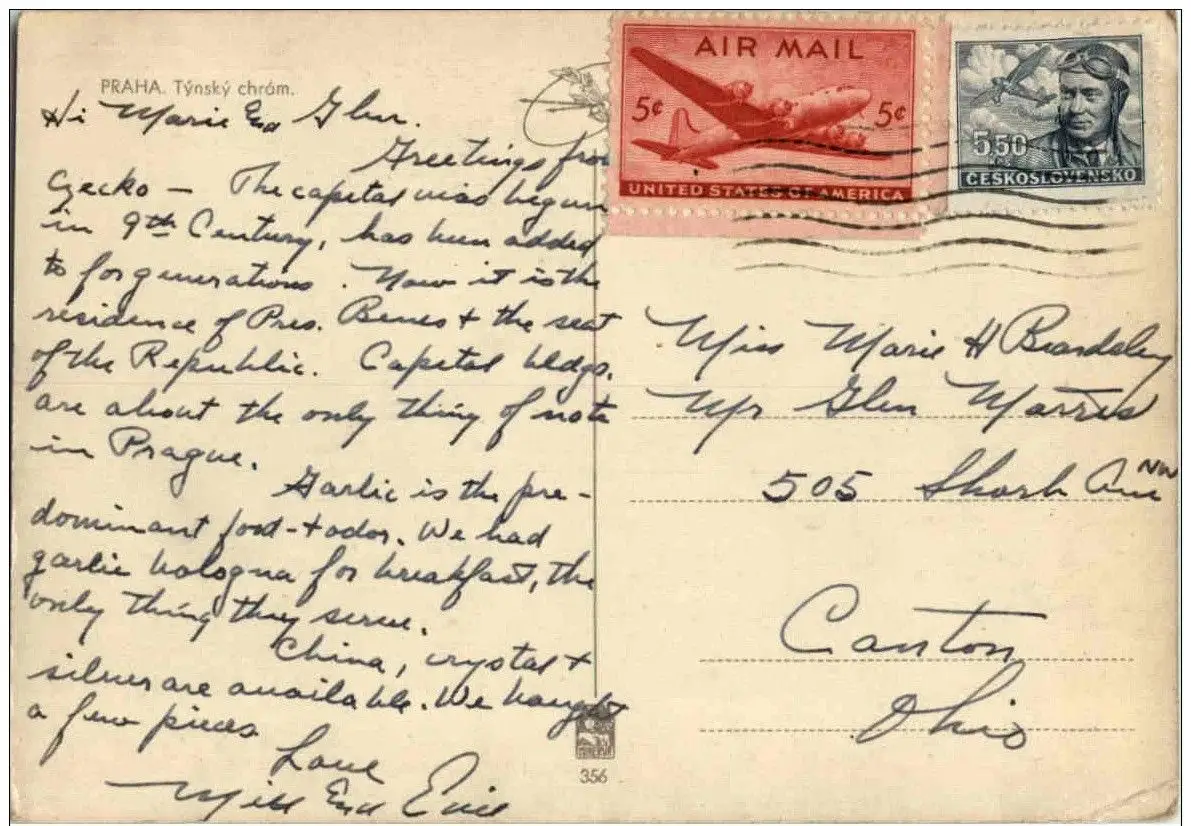 PRAHA. Týnský chrám.
Hi Marie and Glen.
Greetings from
Czecko – The capital was begun
in 9th Century, has been added
to for generations. Now it is the
residence of Pres. Benes + the seat
of the Republic. Capital bldgs.
are about the only thing of note
in Prague.
Garlic is the pre-
dominant food - + odor. We had
garlic bologna for breakfast, the
only thing they serve.
China, crystal +
silver are available. We bought
a few pieces
Love
and
AIR MAIL
5¢ 5¢
UNITED STATES OF AMERICA
5.50
ČESKOSLOVENSKO
Miss Marie H Beardsley
Mr Glen
505 Ave NW
Canton
Ohio
356